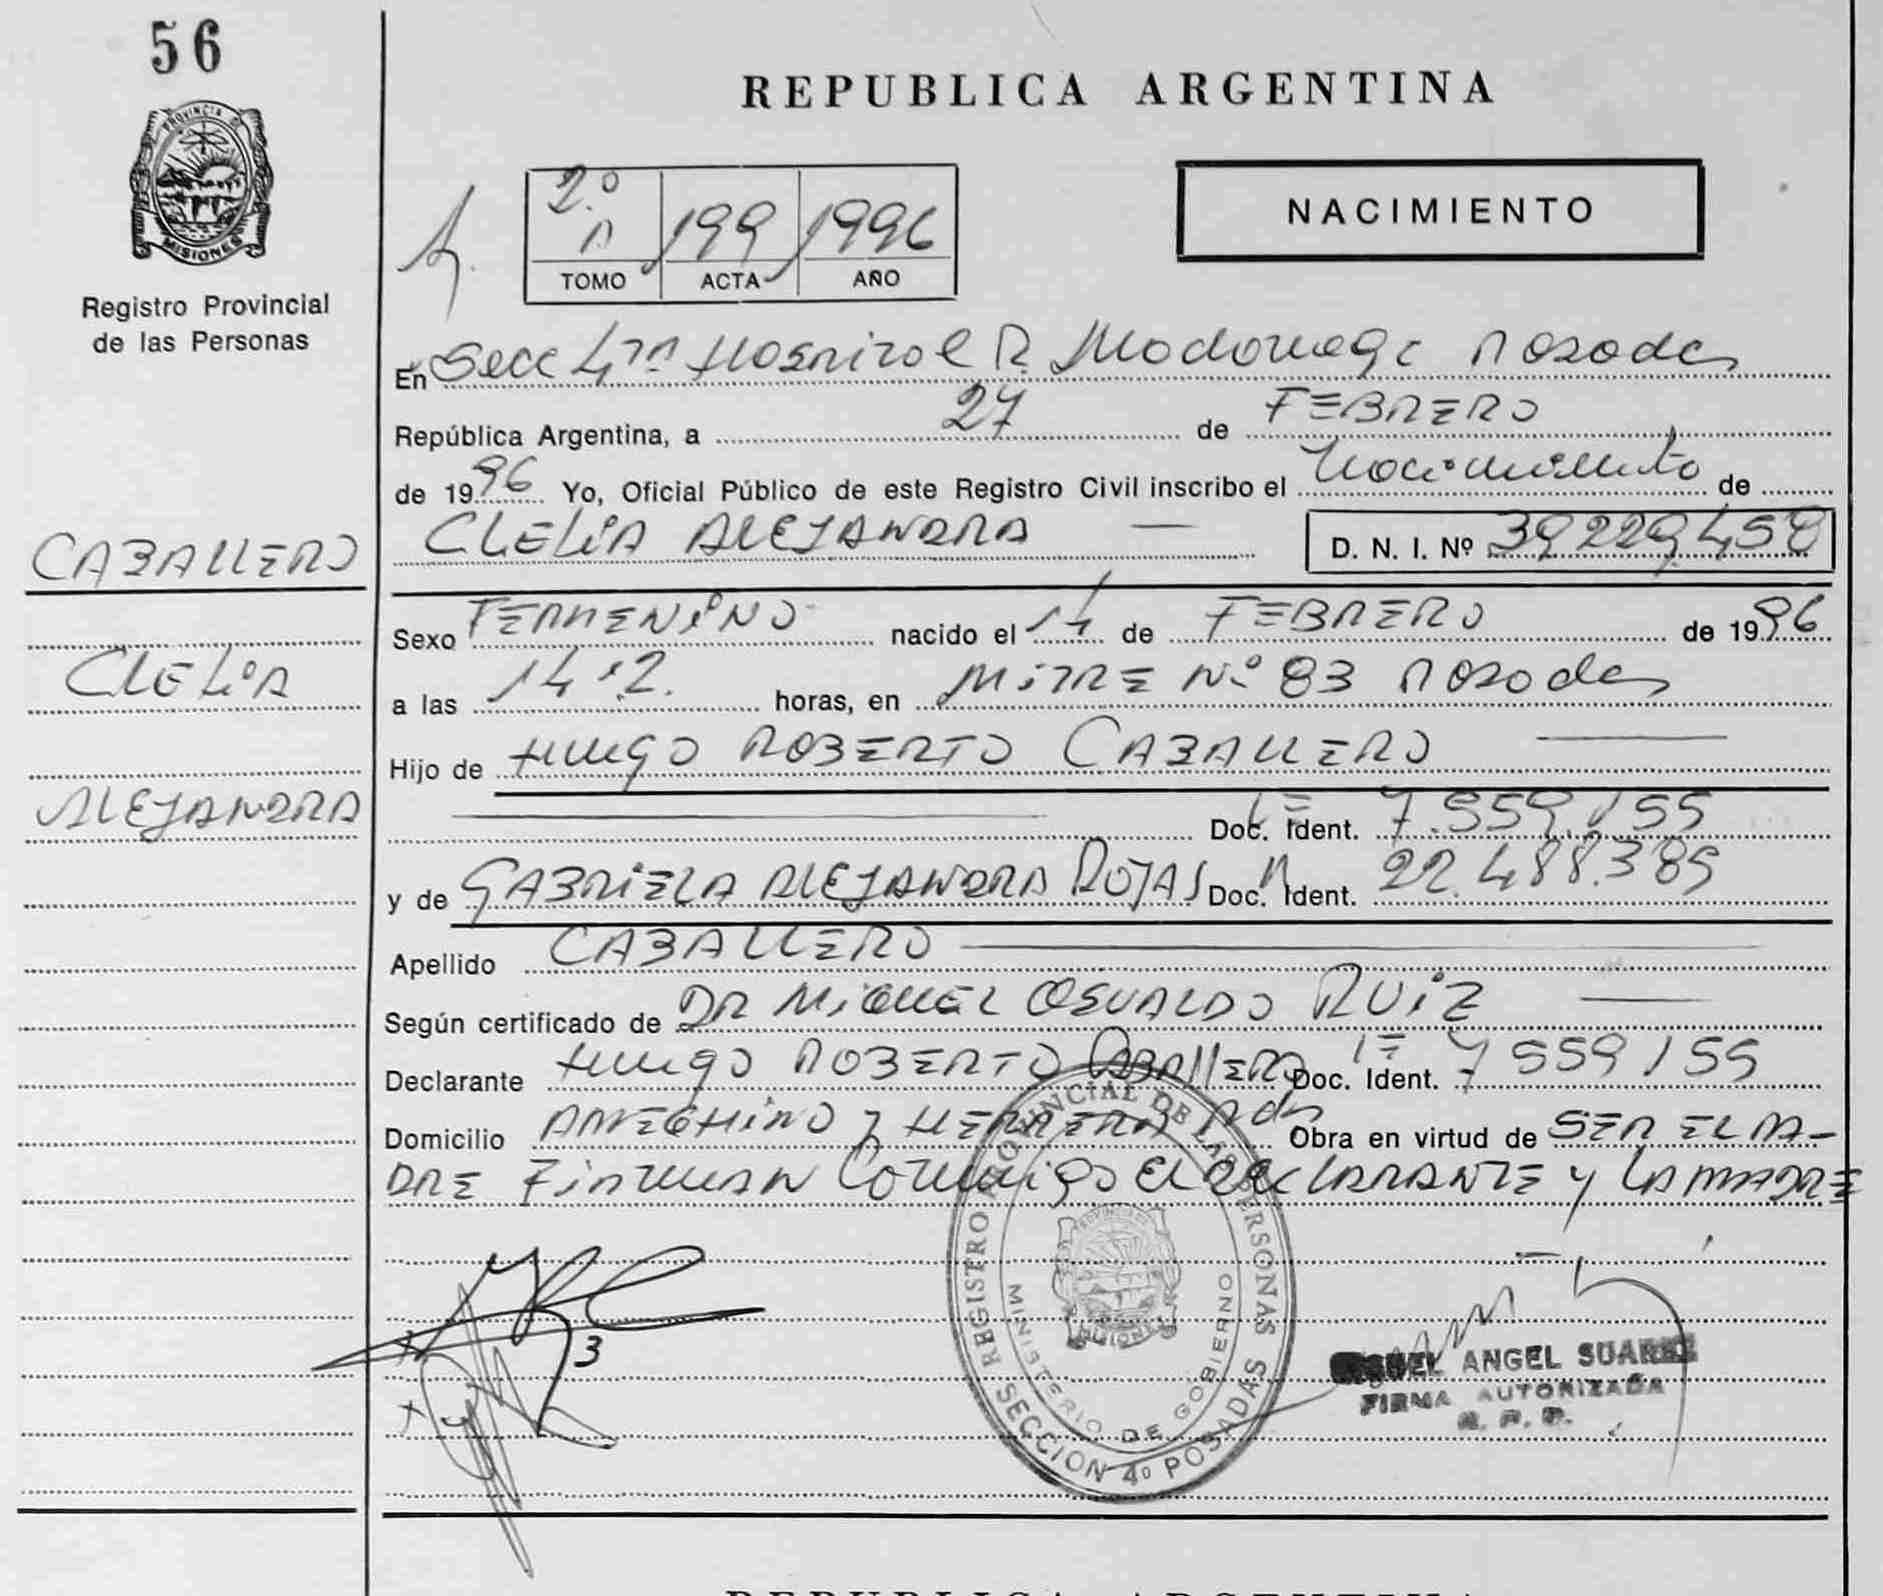 56
PROVINCIA DE
MISIONES
Registro Provincial
de las Personas
CABALLERO
CLELIA
ALEJANDRA
REPUBLICA ARGENTINA
2º A 199 1996
TOMO ACTA AÑO
NACIMIENTO
En Secc 4ta Hospital R Madariaga Posadas
República Argentina, a 27 de FEBRERO
de 1996 Yo, Oficial Público de este Registro Civil inscribo el Nacimiento de
CLELIA ALEJANDRA — D. N. I. Nº 39.229.458
Sexo FEMENINO nacido el 14 de FEBRERO de 1996
a las 14.12. horas, en MITRE Nº 83 Posadas
Hijo de HUGO ROBERTO CABALLERO
LE Doc. Ident. 7.559.155
y de GABRIELA ALEJANDRA ROJAS Doc. Ident. 22.488.389
Apellido CABALLERO
Según certificado de DR MIGUEL OSVALDO RUIZ
Declarante HUGO ROBERTO CABALLERO Doc. Ident. LE 7559155
Domicilio y HERRERA Pdas Obra en virtud de SER EL PA-
DRE FIRMAN Conmigo El DECLARANTE y LA MADRE
REGISTRO PROVINCIAL DE LAS PERSONAS
MINISTERIO DE GOBIERNO
MISIONES
SECCION 4º POSADAS
3
MIGUEL ANGEL SUAREZ
FIRMA AUTORIZADA
R. P. P.
REPUBLICA ARGENTINA